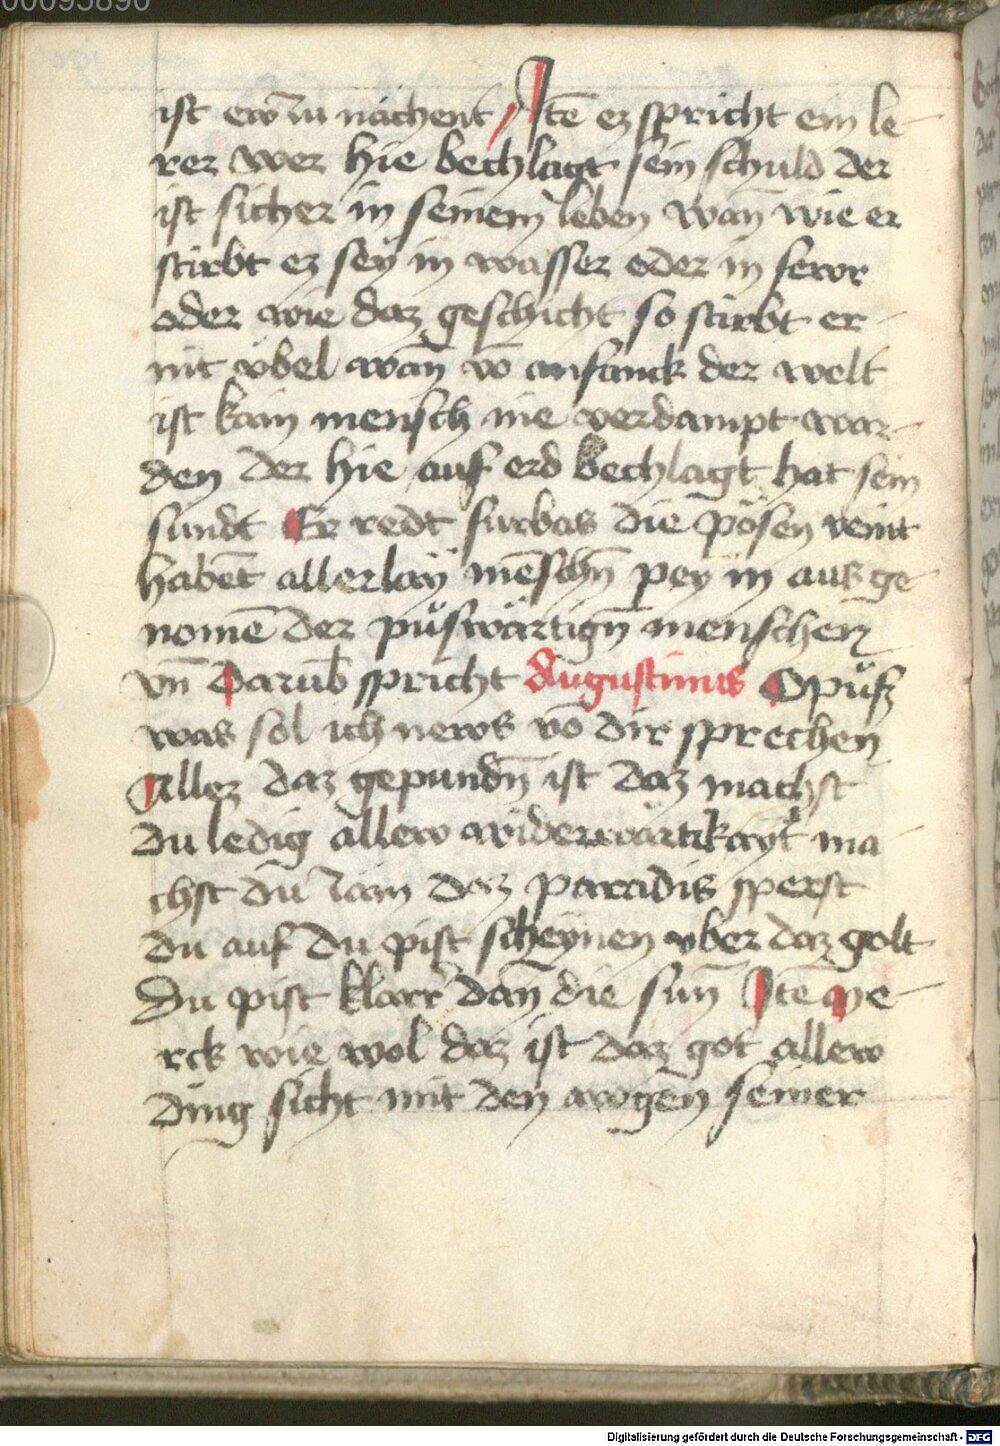 00095890
ist ew̄ zu nachent Itē ez spricht ein le-
rer wer hie bechlagt sein schuld der
ist sicher in seinem leben wan̄ wie er
stirbt ez sey in wasser oder in fewr
oder wie daz geschicht so stirbt er
nit vbel wan̄ vō anfanck der welt
ist kain mensch nie verdampt wor-
den der hie auf erd bechlagt hat sein
sundt Er redt furbas die pösen veint
habēt allerlay mēschn̄ pey in aus ge-
nomē der půswärtign̄ menschen
vn̄ Darūb spricht Augustinus O půß
was sol ich news vō dir sprechen
Allez daz gepundn̄ ist daz machst
du ledig allew widerwärtikayt ma
chst du daz paradis sperst
du auf Du pist scheynen vber daz golt
Du pist klarr dan̄ die sun̄ Itē Me-
rck wie wol daz ist daz got allew
ding sicht mit den awgen seiner
Digitalisierung gefördert durch die Deutsche Forschungsgemeinschaft - DFG